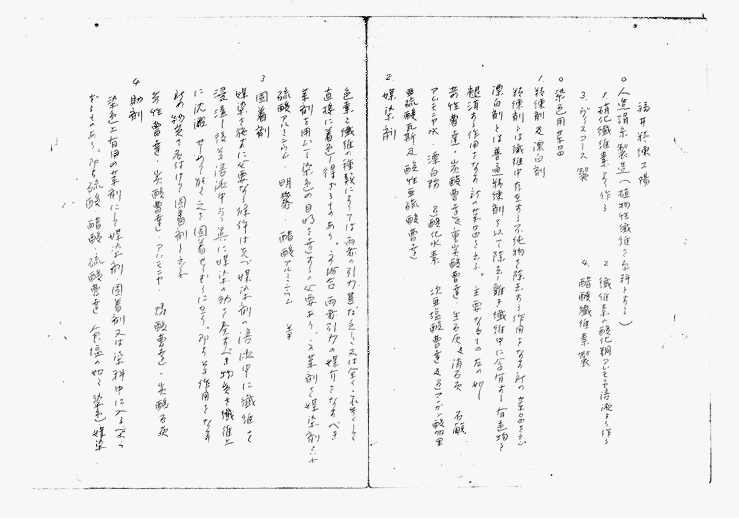 福井精練工場
○人造絹糸製造(植物性纖維を原料とする)
1. 硝化纖維素より作る 2. 纖維素の酸化銅アンモニヤ溶液より作る
3. ヴィスコース製 4. 醋酸纖維素製
○染色用薬品
1. 精練剤及漂白剤
精練剤とは纖維中存在する不純物を除去する作用をなす所の薬品を云ふ
漂白剤とは普通精練剤を以て除去し難き纖維中に含有する有色物を
褪消する作用をなす所の薬品を云ふ。主要なるもの左の如し
苛性曹達・炭酸曹達及重炭酸曹達 生石灰及消石灰 石鹸
アムモニヤ水・漂白粉 過酸化水素 次亜塩酸曹達及過マンガン酸加里
亜硫酸瓦斯及酸性亜硫酸曹達
2. 媒染剤
色素と纖維の種類によりては両者の引力甚だ乏しく又は全くこれなくして
直接に着色し得ざるものあり。この場合両者引力の媒介をなすべき
薬剤を用いて染色の目的を達するの必要あり、この薬剤を媒染剤と云ふ
硫酸アルミニウム 明礬・醋酸アルミニウム 等
3 固着剤
媒染を施すに必要なる條件は先づ媒染剤の溶液中に纖維を
浸漬し後其溶液中より真に媒染の功を奏すべき物質を纖維上
に沈澱せしめて然も之を固着せしむるにあり、即ち其作用をなす
所の物質を名付けて固着剤と云ふ
苛性曹達・炭酸曹達・アムモニヤ・燐酸曹達・炭酸石灰
4 助剤
染色上有用の薬剤にして媒染剤 固着剤又は染料中に入らざる
ものあり、即ち硫酸 醋酸・硫酸曹達 食塩の如き染色媒染